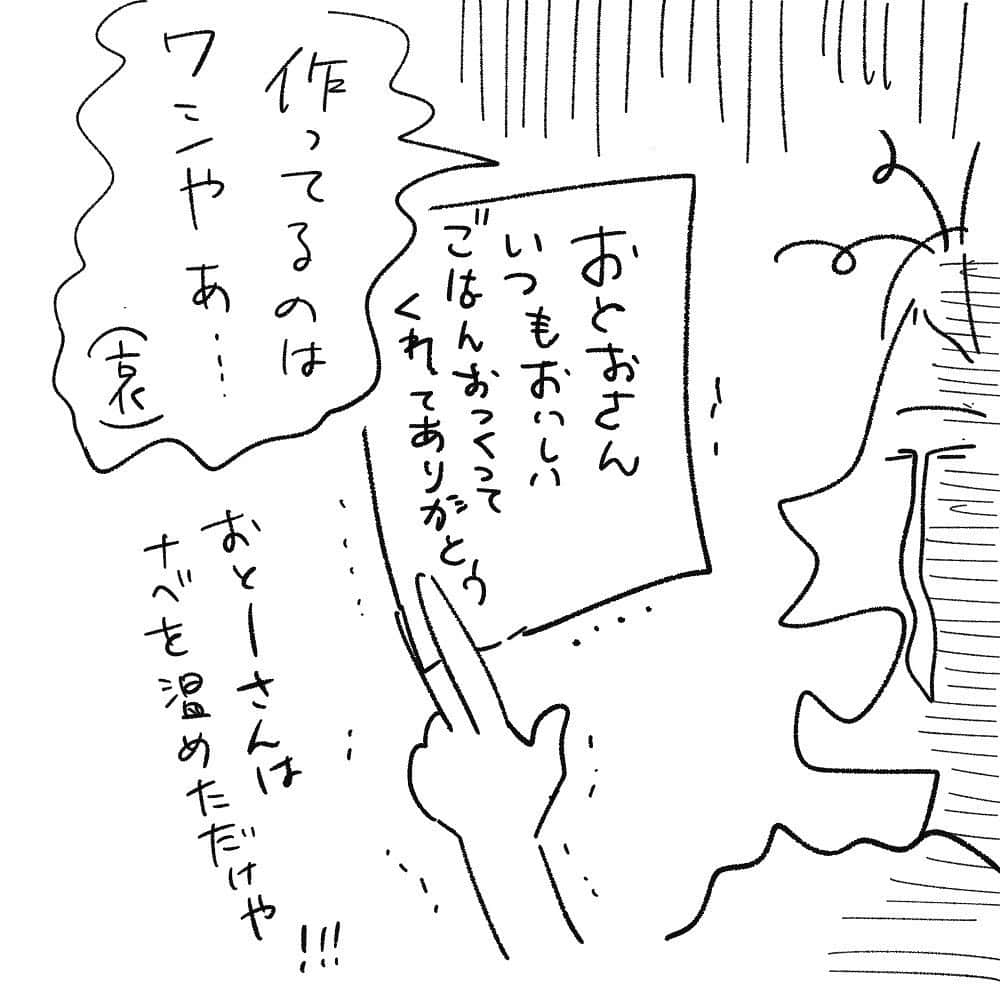 おとおさん
いつもおいしい
ごはんおつくって
くれてありがとう
作ってるのは
ワシやぁ…
(哀)
おとーさんは
ナベを温めただけや
!!!